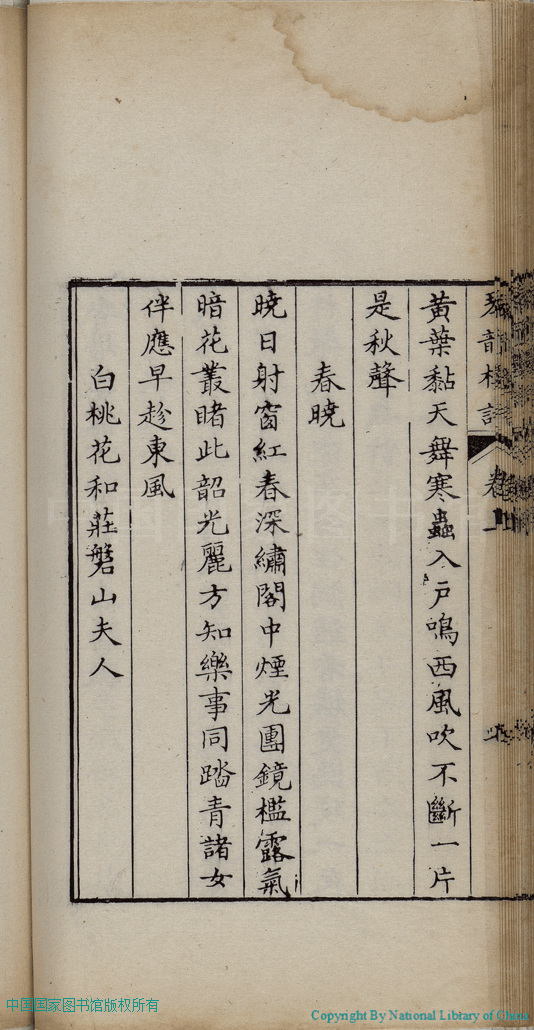 黃葉黏天舞寒蟲入戶鳴西風吹不斷一片
是秋聲
春曉
曉日射窗紅春深繡閣中煙光團鏡檻露氣
暗花叢睹此韶光麗方知樂事同踏青諸女
伴應早趁東風
白桃花和莊磐山夫人
中国国家图书馆版权所有
Copyright By National Library of China